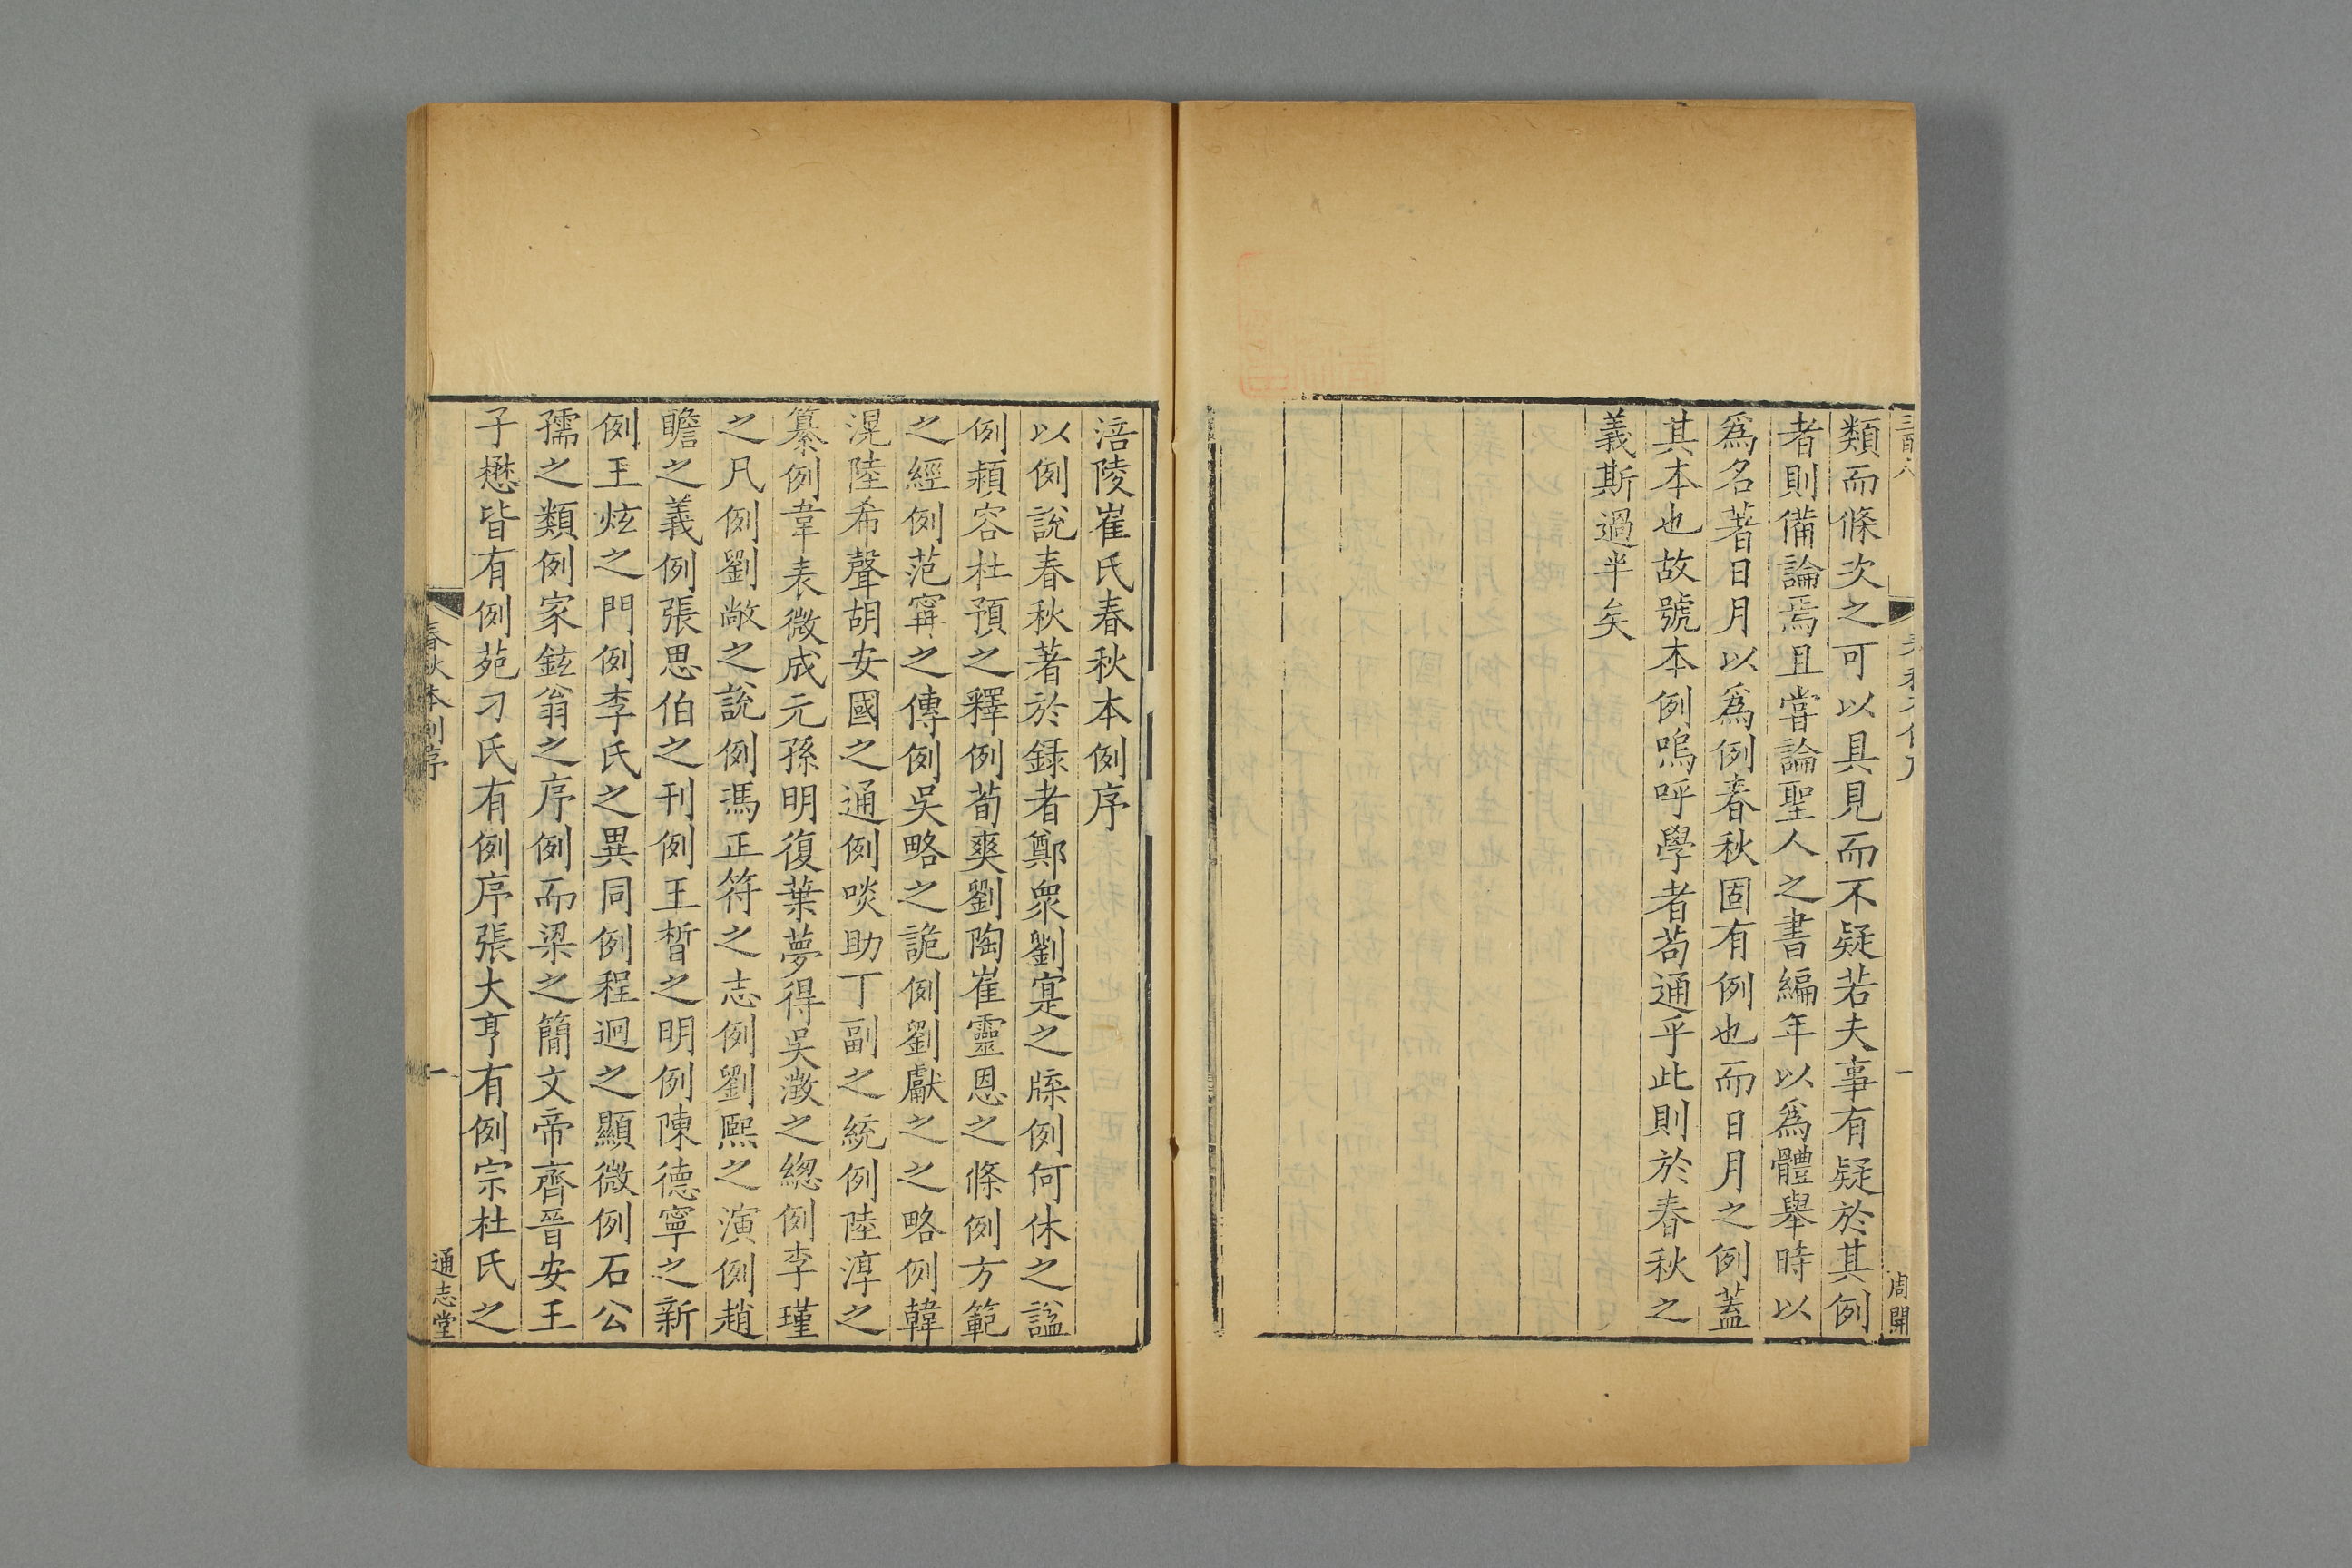 類而條次之可以具見而不疑若夫事有疑於其例
者則備論焉且嘗論聖人之書編年以爲體舉時以
爲名著日月以爲例春秋固有例也而日月之例蓋
其本也故號本例嗚呼學者苟通乎此則於春秋之
義斯過半矣
一
周開
涪陵崔氏春秋本例序
以例說春秋著於録者鄭衆劉寔之牒例何休之諡
例潁容杜預之釋例荀爽劉陶崔靈恩之條例方範
之經例范甯之傳例吳略之詭例劉獻之之略例韓
滉陸希聲胡安國之通例啖助丁副之統例陸淳之
纂例韋表微成元孫明復葉夢得吳澂之緫例李瑾
之凡例劉敞之說例馮正符之志例劉熙之演例趙
瞻之義例張思伯之刊例王晳之明例陳德寧之新
例王炫之門例李氏之異同例程迥之顯微例石公
孺之類例家鉉翁之序例而梁之簡文帝齊晉安王
子懋皆有例苑刁氏有例序張大亨有例宗杜氏之
春秋本例序
一
通志堂